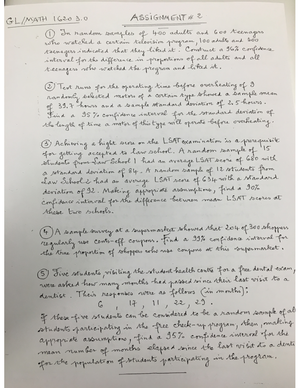 GL/MATH 1620 3.0 ASSIGNMENT # 2
① In random samples of 400 adults and 600 teenagers
who watched a certain television program, 100 adults and 300
teenagers indicated that they liked it. Construct a 96% confidence
interval for the difference in proportions of all adults and all
teenagers who watched the program and liked it.
② Test runs for the operating time before overheating of 9
randomly selected motors of a certain type showed a sample mean
of 33.3 hours and a sample standard deviation of 2.5 hours.
Find a 95% confidence interval for the standard deviation of
the length of time a motor of this type will operate before overheating.
③ Achieving a high score on the LSAT examination is a prerequisite
for getting accepted to law school. A random sample of 15
students from Law School 1 had an average LSAT score of 680 with
a standard deviation of 84. A random sample of 12 students from
Law School 2 had an average LSAT score of 634 with a standard
deviation of 92. Making appropriate assumptions, find a 90%
confidence interval for the difference between mean LSAT scores at
these two schools.
④ A sample survey at a supermarket showed that 204 of 300 shoppers
regularly use cents-off coupons. Find a 99% confidence interval for
the true proportion of shoppers who use coupons at this supermarket.
⑤ Five students visiting the student health centre for a free dental exam,
were asked how many months had passed since their last visit to a
dentist. Their responses were as follows (in months):
6, 17, 11, 22, 29.
If these five students can be considered to be a random sample of all
students participating in the free check-up program, then making
appropriate assumptions, find a 95% confidence interval for the
mean number of months elapsed since the last visit to a dentist
for the population of students participating in the program.